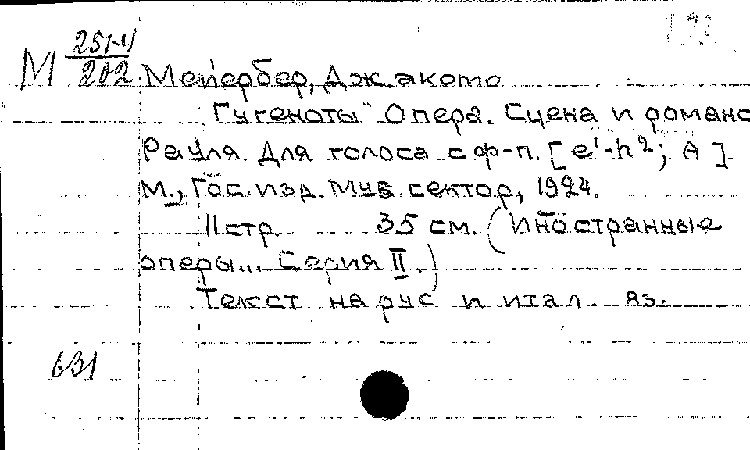 М 251-V/202 Мейербер, Джакомо
"Гугеноты" Опера. Сцена и романс
Рауля. Для голоса с ф-п. [e¹-h²; A]
М., Гос. изд. Муз. сектор, 1924.
11 стр 35 см. (Иностранные
оперы... Серия II)
Текст на рус и итал. яз.
631